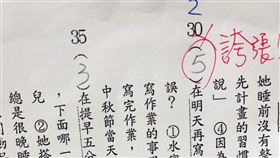 她睡前沒有終
先計畫的習
說」④因為
2
30(5)在明天再寫
誇張!
誤?①水
寫作業的事
寫完作業,
中秋節當天
35(3)在提早五分
,下面哪一
兒 ②她搭
總是很晚睡